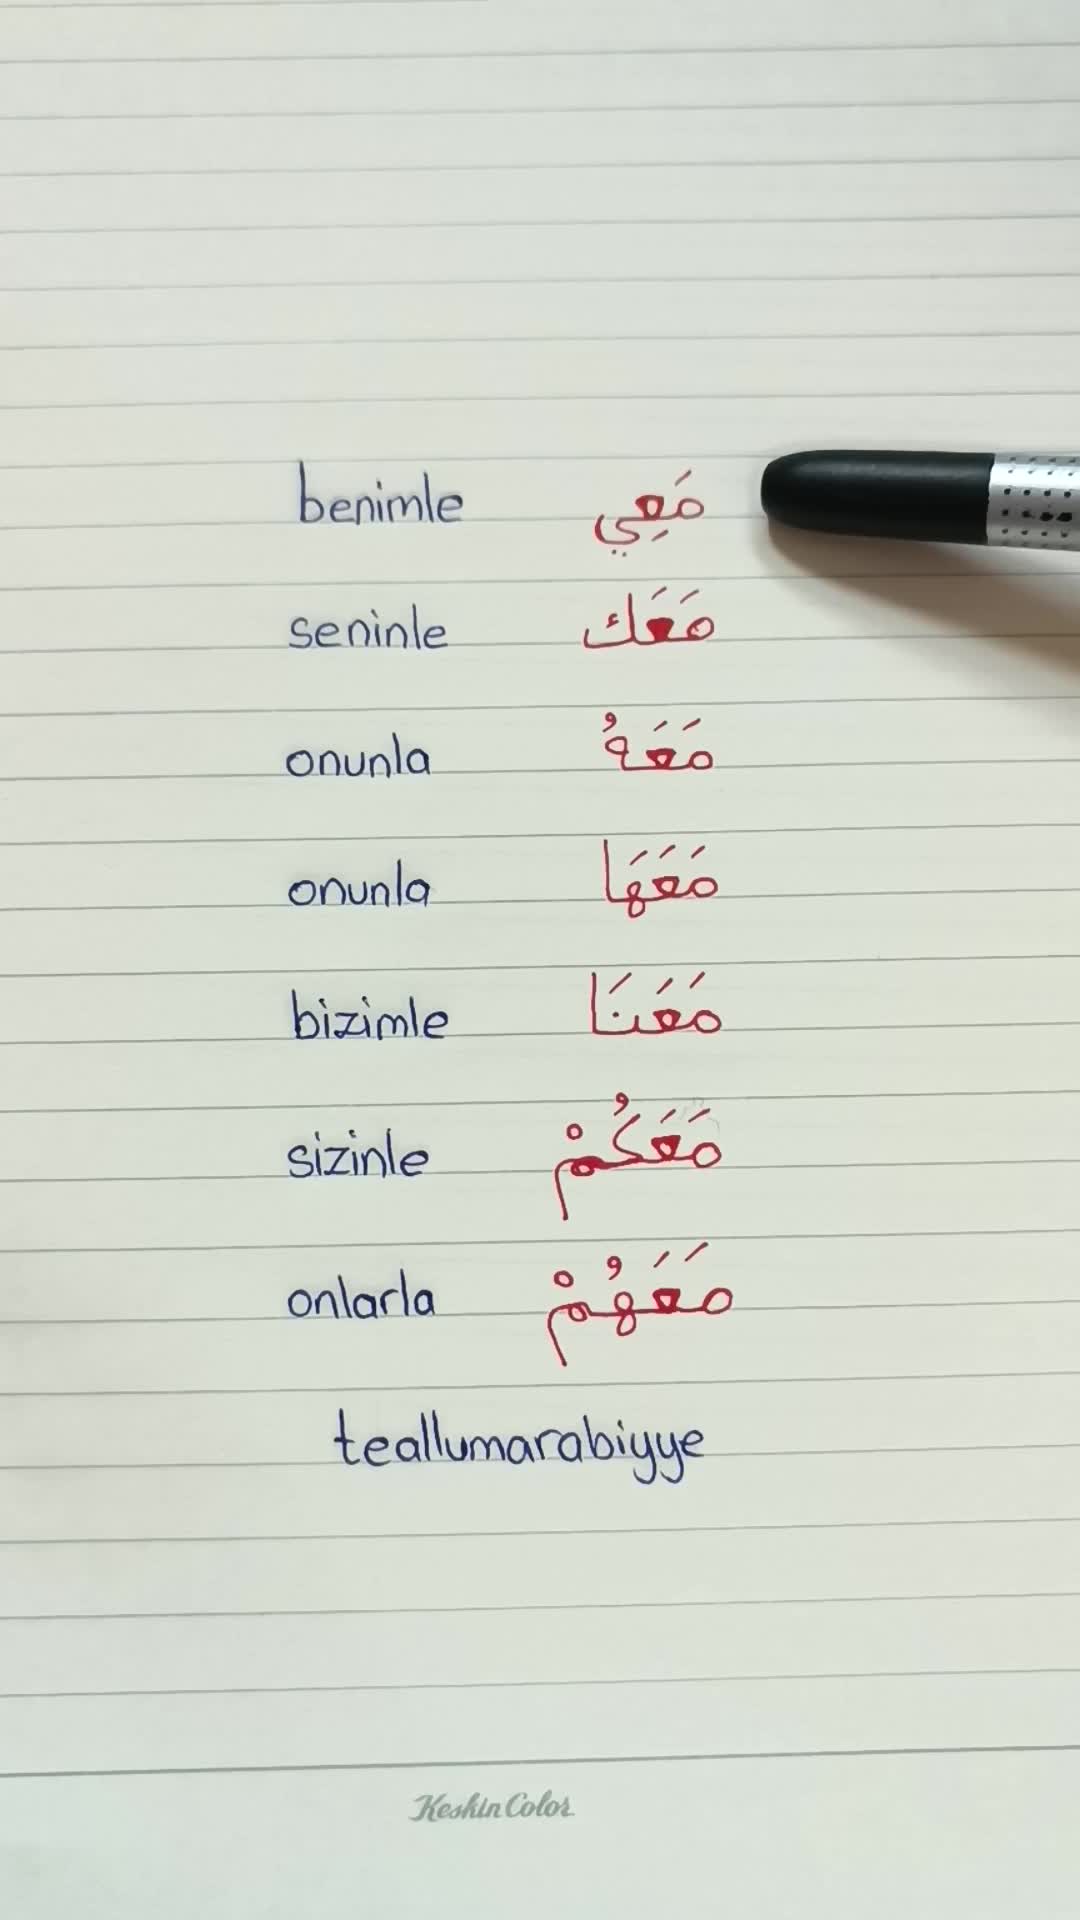 benimle مَعِي
seninle مَعَك
onunla مَعَهُ
onunla مَعَهَا
bizimle مَعَنَا
sizinle مَعَكُمْ
onlarla مَعَهُمْ
teallumarabiyye
Keskin Color